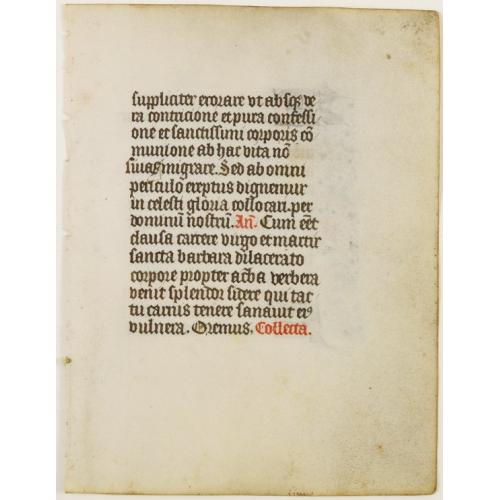 suppliciter exorare vt absqȝ ve
ra contricione et pura confessi
one et sanctissimi corporis cō
munione ab hac vita nō
migrare. Sed ab omni
periculo ereptus dignemur
in celesti gloria collocari. per
dominū nostrū. Añ. Cum eēt
clausa carcere virgo et martir
sancta barbara dilacerato
corpore propter acba verbera
venit splendor sidere qui tac
tu carius tenere sanauit eiꝰ
vulnera. Oremus. Collecta.